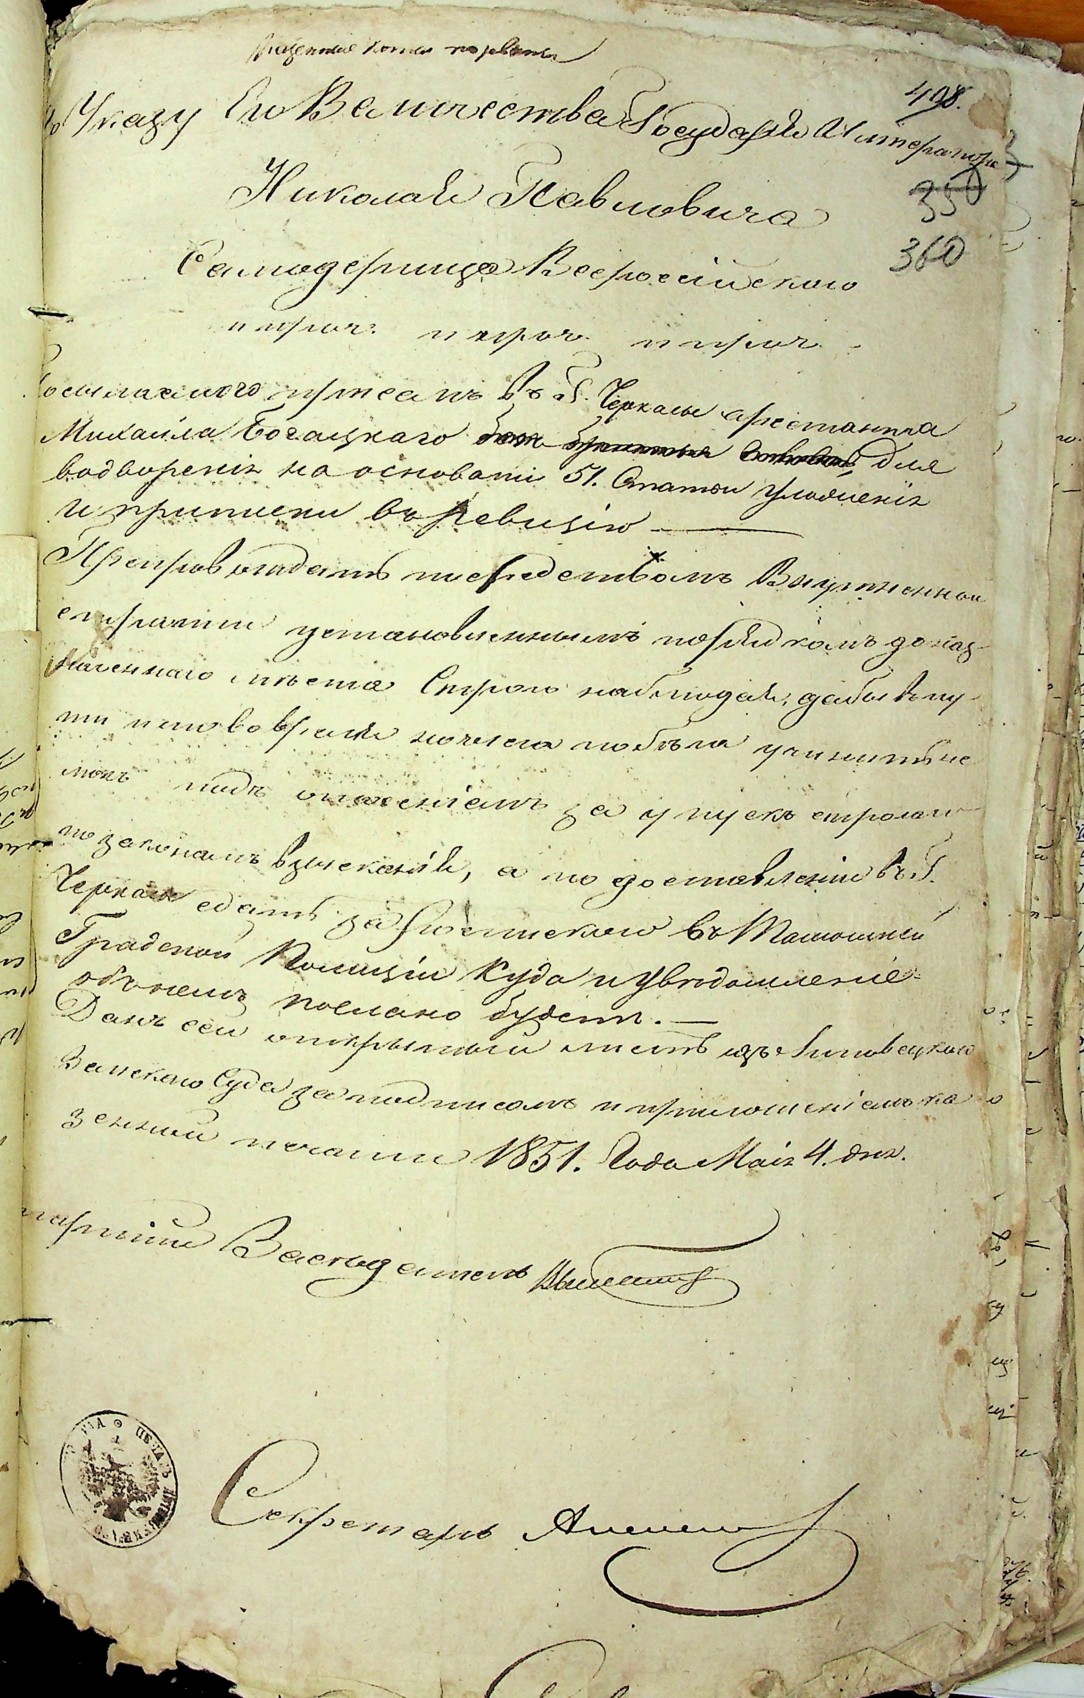 498.
По Указу Его Величества Государя Императора
350
Николая Павловича
360
Самодержца Всероссійскаго
и проч. и проч. и проч.
Посылаемого при семъ въ Г. Черкасы арестанта
Михаила Богацкаго для
водворенія на основаніи 51. Статьи Уложенія
и приписки въ ревизію
Препроводить посредствомъ Внутренной
стражи установленнымъ порядкомъ до наз-
наченнаго мѣста Строго наблюдая, дабы въ пу-
ти и на во время ночлега побѣга учинить не
могъ подъ опасеніемъ за упускъ строгаго
по законамъ взысканія, а по доставленіи въ Г.
Черкасы сдать за роспискою въ тамошней
Градской Полиціи куда и увѣдомленіе
объ немъ послано будетъ.
Данъ сей открытый листъ изъ Липовецкаго
Земскаго Суда за подписомъ и приложеніемъ ка-
зенной печати 1851. Года Маія 4. дня.
Засѣдатель
Секретарь